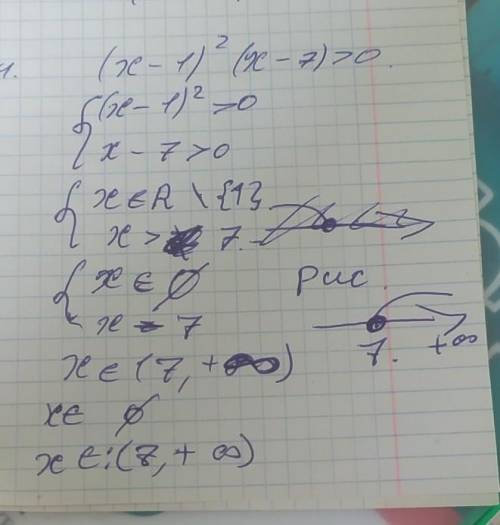 (x-1)²(x-7)>0.
{(x-1)²>0
x-7>0
{x∈R\{1}
x> 7.
{x∈∅ Рис.
x = 7
7. +∞
x∈(7,+∞)
x∈ ∅
x∈:(7,+∞)